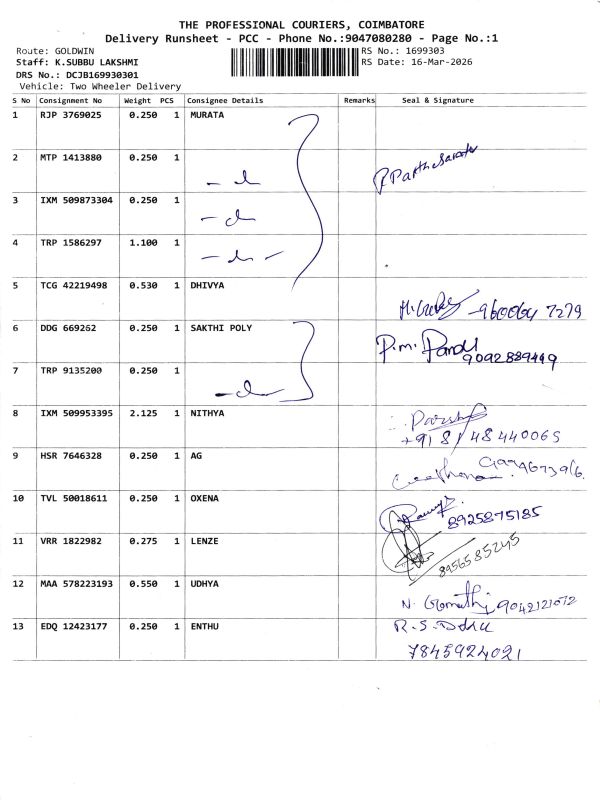 THE PROFESSIONAL COURIERS, COIMBATORE
Delivery Runsheet - PCC - Phone No.:9047080280 - Page No.:1
Route: GOLDWIN
RS No.: 1699303
Staff: K.SUBBU LAKSHMI
RS Date: 16-Mar-2026
DRS No.: DCJB169930301
Vehicle: Two Wheeler Delivery
S No Consignment No Weight PCS Consignee Details Remarks Seal & Signature
1 RJP 3769025 0.250 1 MURATA
2 MTP 1413880 0.250 1
P Parthasarathi
3 IXM 509873304 0.250 1
4 TRP 1586297 1.100 1
5 TCG 42219498 0.530 1 DHIVYA
7279
6 DDG 669262 0.250 1 SAKTHI POLY
P.m. Pandi
9092889449
7 TRP 9135200 0.250 1
8 IXM 509953395 2.125 1 NITHYA
+91 81484 40065
9 HSR 7646328 0.250 1 AG
10 TVL 50018611 0.250 1 OXENA
8925875185
11 VRR 1822982 0.275 1 LENZE
8956585245
12 MAA 578223193 0.550 1 UDHYA
N. Gomathi 9042121072
13 EDQ 12423177 0.250 1 ENTHU
R.S.
7845924021